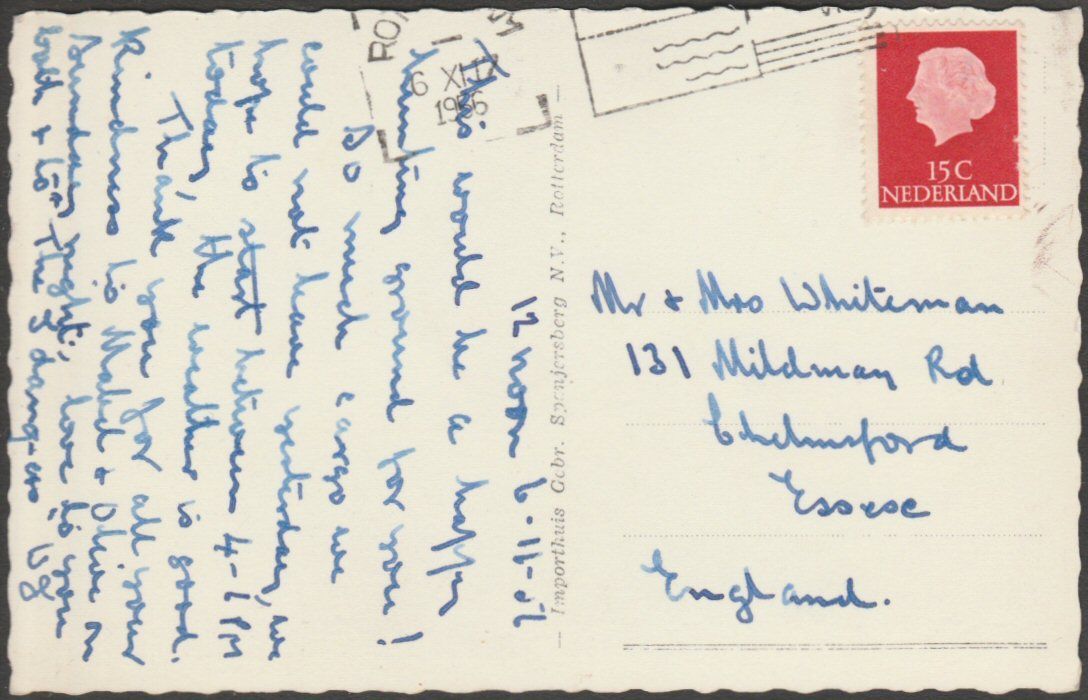 12 noon 6-11-56
This would be a happy
hunting ground for you!
So much cargo we
could not leave yesterday, we
hope to start between 4-6 pm
today, the weather is good.
Thank you for all your
kindness to Mabel & Olive on
Sunday night, love to you
both & to The gang-as
— Importhuis Gebr. Spanjersberg N.V., Rotterdam —
6 XI 17
1956
15 C
NEDERLAND
Mr & Mrs Whiteman
131 Mildmay Rd
Chelmsford
Essex
England.